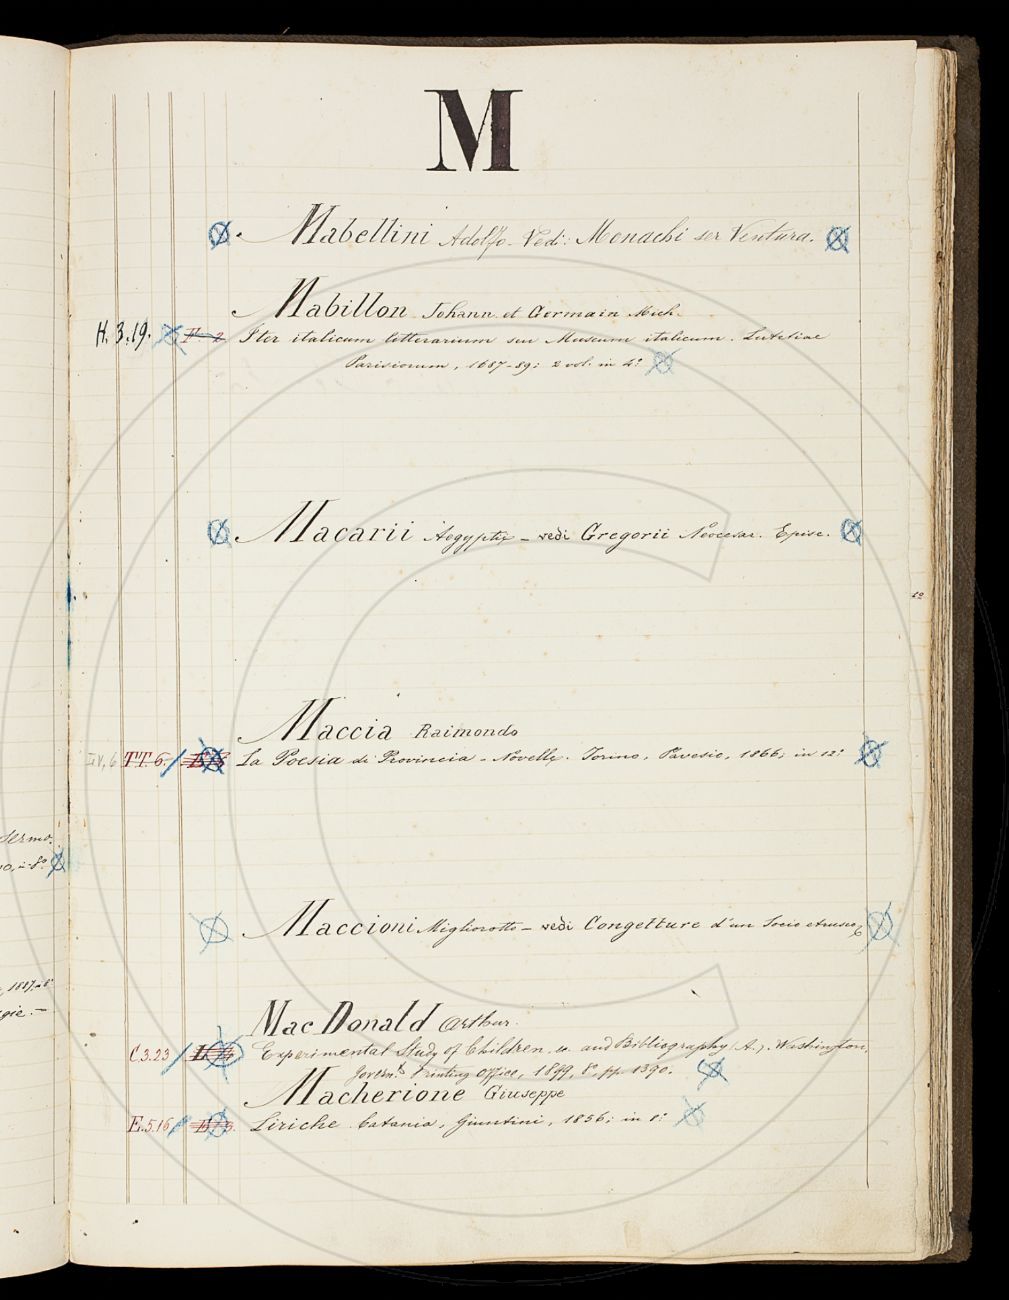 M
Mabellini Adolfo - Vedi: Monachi ser Ventura.
Mabillon Johann. et Germain Mich.
H. 3. 19. Iter italicum litterarium seu Museum italicum. Lutetiae
Parisiorum, 1687-89; 2 vol. in 4°
Macarii Aegyptii - vedi Gregorii Neocesar. Episc.
Maccia Raimondo
IV, 6 TT. 6. La Poesia di Provincia - Novelle. Torino, Pavesio, 1866; in 12°
Maccioni Migliorotto - vedi Congetture d'un Socio etrusco
Mac Donald Arthur.
C. 3. 23 Experimental Study of Children, and Bibliography (A.). Washington,
Governt Printing Office, 1899, 8°, pp. 1390.
Macherione Giuseppe
E. 5. 16 Liriche. Catania, Giuntini, 1856; in 8°